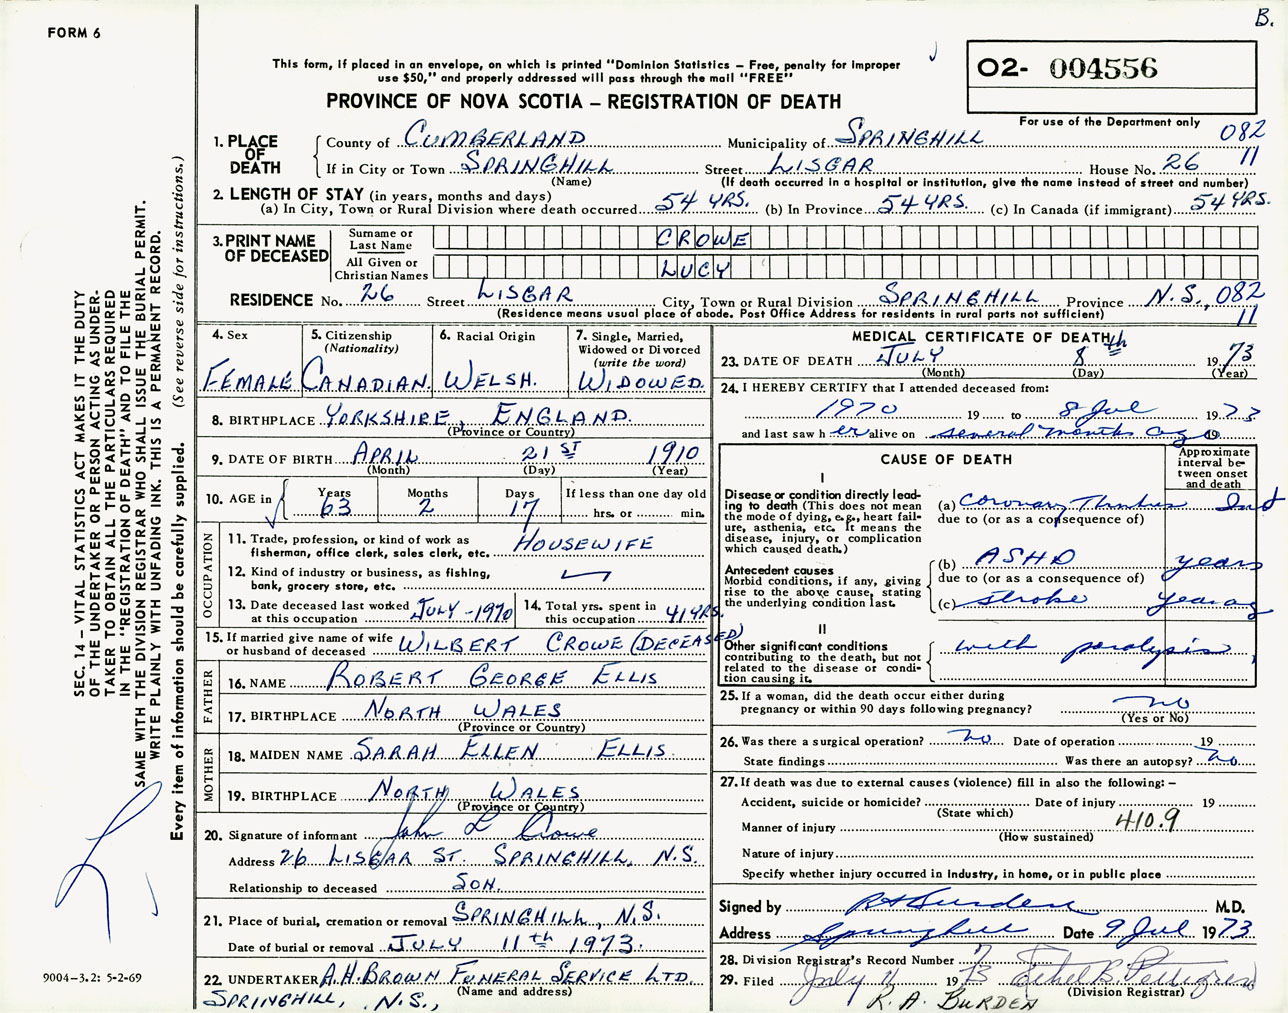 B.
FORM 6
This form, if placed in an envelope, on which is printed "Dominion Statistics – Free, penalty for improper
use $50," and properly addressed will pass through the mail "FREE"
PROVINCE OF NOVA SCOTIA – REGISTRATION OF DEATH
O2- 004556
For use of the Department only
082
11
1. PLACE OF DEATH County of CUMBERLAND Municipality of SPRINGHILL
If in City or Town SPRINGHILL Street LISGAR House No. 26
(Name) (If death occurred in a hospital or institution, give the name instead of street and number)
2. LENGTH OF STAY (in years, months and days)
(a) In City, Town or Rural Division where death occurred 54 YRS. (b) In Province 54 YRS. (c) In Canada (if immigrant) 54 YRS.
3. PRINT NAME OF DECEASED
Surname or Last Name CROWE
All Given or Christian Names LUCY
RESIDENCE No. 26 Street LISGAR City, Town or Rural Division SPRINGHILL Province N.S., 082
(Residence means usual place of abode. Post Office Address for residents in rural parts not sufficient) 11
4. Sex
FEMALE
5. Citizenship
(Nationality)
CANADIAN.
6. Racial Origin
WELSH.
7. Single, Married,
Widowed or Divorced
(write the word)
WIDOWED
8. BIRTHPLACE YORKSHIRE, ENGLAND.
(Province or Country)
9. DATE OF BIRTH APRIL 21ST 1910
(Month) (Day) (Year)
10. AGE in Years 63 Months 2 Days 17 If less than one day old
hrs. or min.
OCCUPATION
11. Trade, profession, or kind of work as
fisherman, office clerk, sales clerk, etc. HOUSEWIFE
12. Kind of industry or business, as fishing,
bank, grocery store, etc.
13. Date deceased last worked
at this occupation JULY-1970
14. Total yrs. spent in
this occupation 41 YRS.
15. If married give name of wife
or husband of deceased WILBERT CROWE (DECEASED)
FATHER
16. NAME ROBERT GEORGE ELLIS
17. BIRTHPLACE NORTH WALES
(Province or Country)
MOTHER
18. MAIDEN NAME SARAH ELLEN ELLIS.
19. BIRTHPLACE NORTH WALES
(Province or Country)
20. Signature of informant John L Crowe
Address 26 LISGAR ST. SPRINGHILL, N.S.
Relationship to deceased SON.
21. Place of burial, cremation or removal SPRINGHILL, N.S.
Date of burial or removal JULY 11th 1973.
22. UNDERTAKER A.H. BROWN FUNERAL SERVICE LTD.
(Name and address)
SPRINGHILL, N.S.,
MEDICAL CERTIFICATE OF DEATH
23. DATE OF DEATH JULY 8th 1973
(Month) (Day) (Year)
24. I HEREBY CERTIFY that I attended deceased from:
1970 19 to 8 Jul 1973
and last saw her alive on several months ago 19
CAUSE OF DEATH
Approximate
interval be-
tween onset
and death
I
Disease or condition directly lead-
ing to death (This does not mean
the mode of dying, e.g., heart fail-
ure, asthenia, etc. It means the
disease, injury, or complication
which caused death.)
(a) Coronary
due to (or as a consequence of)
Antecedent causes
Morbid conditions, if any, giving
rise to the above cause, stating
the underlying condition last.
(b) ASHD years
due to (or as a consequence of)
(c) stroke
II
Other significant conditions
contributing to the death, but not
related to the disease or condi-
tion causing it.
with paralysis
25. If a woman, did the death occur either during
pregnancy or within 90 days following pregnancy? no
(Yes or No)
26. Was there a surgical operation? no Date of operation 19
State findings Was there an autopsy? no
27. If death was due to external causes (violence) fill in also the following: –
Accident, suicide or homicide? Date of injury 19
(State which)
Manner of injury 410.9
(How sustained)
Nature of injury
Specify whether injury occurred in industry, in home, or in public place
Signed by RA Burden M.D.
Address Springhill Date 9 Jul 1973
28. Division Registrar's Record Number 7
29. Filed July 11 1973 Ethel B. Pettigrew
(Division Registrar)
R. A. BURDEN
SEC. 14 – VITAL STATISTICS ACT MAKES IT THE DUTY
OF THE UNDERTAKER OR PERSON ACTING AS UNDER-
TAKER TO OBTAIN ALL THE PARTICULARS REQUIRED
IN THE "REGISTRATION OF DEATH" AND TO FILE THE
SAME WITH THE DIVISION REGISTRAR WHO SHALL ISSUE THE BURIAL PERMIT.
WRITE PLAINLY WITH UNFADING INK. THIS IS A PERMANENT RECORD.
Every item of information should be carefully supplied. (See reverse side for instructions.)
9004–3.2: 5-2-69